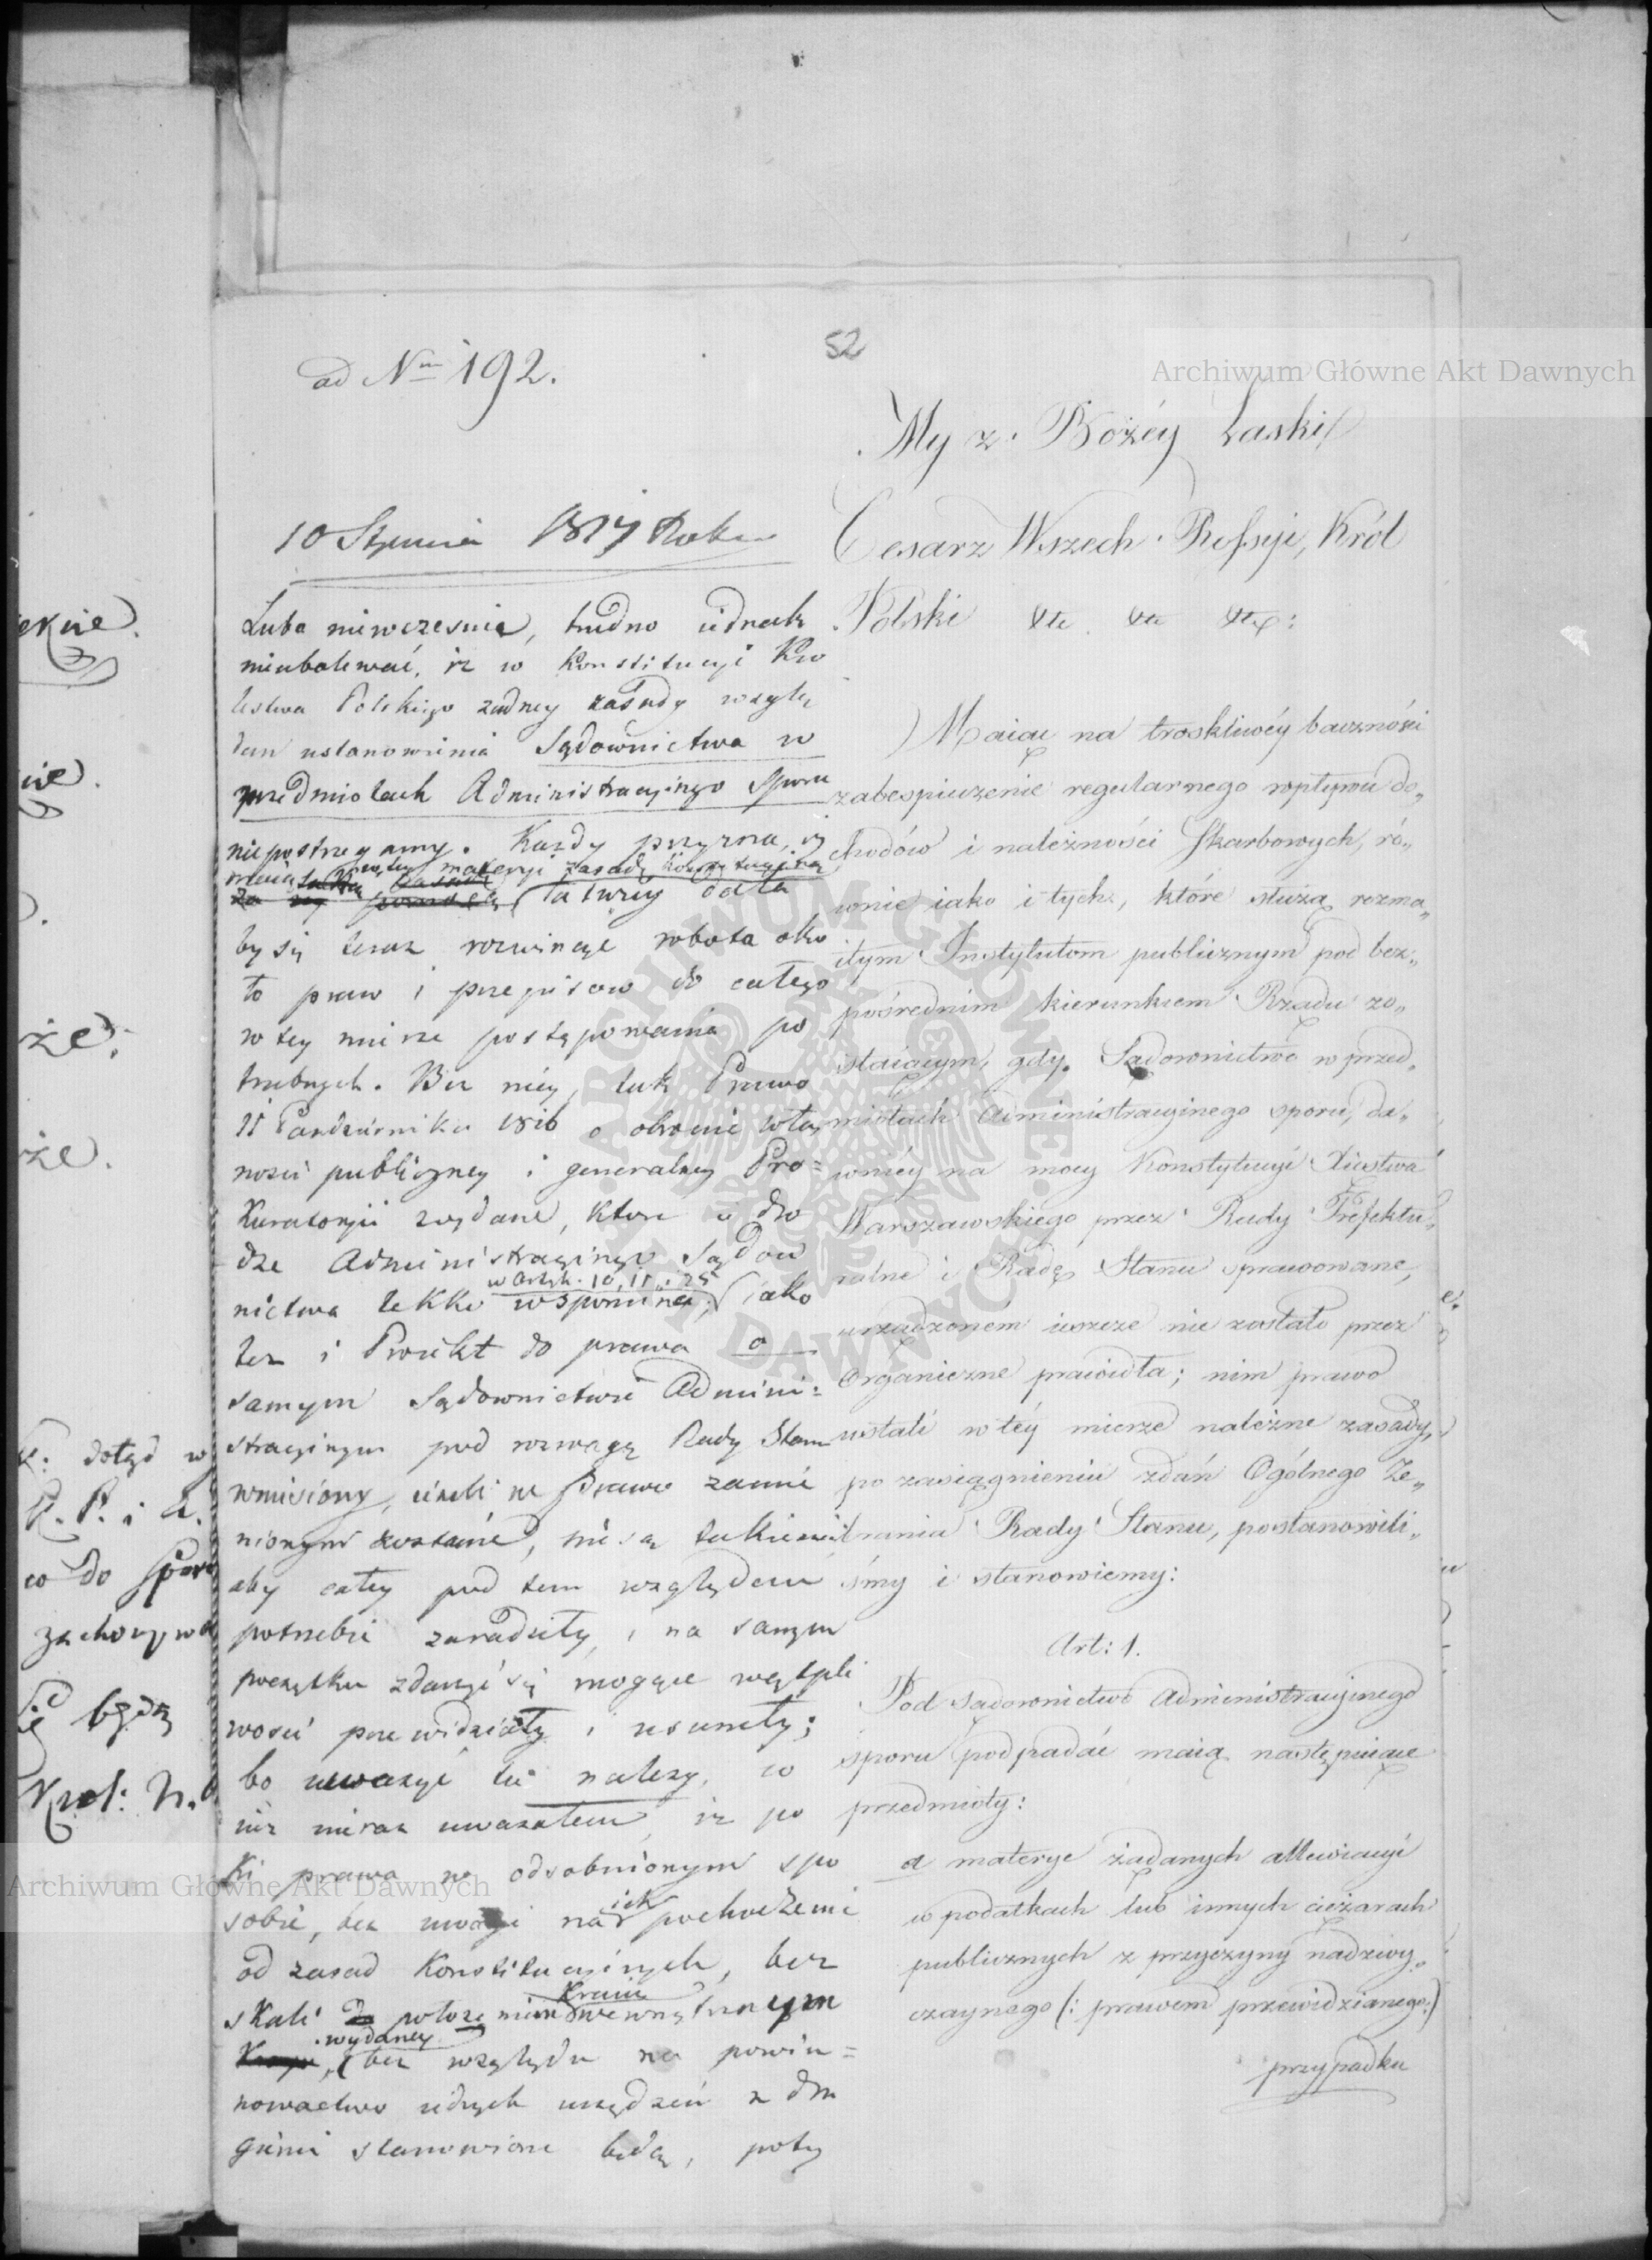 52
ad Nrm 192.
10 Stycznia 1817 Roku
Lubo niewcześnie, trudno iednak
nieubolewać, iż w Konstitucyi Kró
lestwa Polskiego żadney zasady wzglę
dem ustanowienia Sądownictwa w
przedmiotach Administracyinego Sporu
niepostrzegamy. Każdy przyzna, iż
materyi zasadę
łatwiey dała
by się teraz rozwinąć robota oko
ło praw i przepisów do całego
w tey mierze postępowania po
trzebnych. Bez niey, tak Prawo
11 Października 1816 o obronie włas
ności publiczney i generalney Pro=
kuratoryi wydane, które o dro
dze Administracyinego Sądow
w Artyk. 10, 11 i 25
nictwa lekko wspomina; iako
też i Proiekt do prawa o
samym Sądownictwie Admini:
stracyinym pod rozwagę Rady Stanu
wniesiony, ieżeli w Prawo zamie
nionym zostanie, nie są takiemi
aby całey pod tem względem
potrzebie zaradziły, i na samym
początku zdarzyć się mogące wątpli
wości przewidziały i usunęły;
bo uważyć tu należy, co
iuż nieraz uważałem, iż po
ki prawa w odosobnionym spo
sobie, bez uwagi na ich pochodzenie
od zasad Konstitucyinych, bez
skali do położenia Kraiu wewnętrznym
wydaney
bez względu na powin=
nowactwo iednych urządzeń z dru
giemi stanowione będą, poty
My z Bożéy Łaski
Cesarz Wszech Rossyi, Król
Polski &tc &tc &tc:
Maiąc na troskliwéy baczności
zabespieczenie regularnego wpływu do„
chodów i należności Skarbowych, ró„
wnie iako i tych, które służą rozma„
itym Instytutom publicznym pod bez„
pośrednim kierunkiem Rządu zo„
staiącym, gdy Sądownictwo w przed„
miotach Administracyinego sporu, da„
wniéy na mocy Konstytucyi Xięstwa
Warszawskiego przez Rady Prefektu„
ralne i Radę Stanu sprawowane,
urządzoném ieszcze nie zostało przez
Organiczne prawidła; nim prawo
ustali w téy mierze należne zasady,
po zasiągnieniu zdań Ogólnego Ze„
brania Rady Stanu, postanowili„
śmy i stanowiemy:
Art: 1.
Pod Sądownictwo Administracyinego
sporu podpadać maią następuiące
przedmioty:
a materye żądanych allewiacyi
w podatkach lub innych ciężarach
publicznych z przyczyny nadzwy„
czaynego (: prawem przewidzianego:)
przypadku
dotąd w
R. P. i
co do Spor
zachowywa
będą
Archiwum Główne Akt Dawnych
Archiwum Główne Akt Dawnych
ARCHIWUM GŁÓWNE AKT DAWNYCH